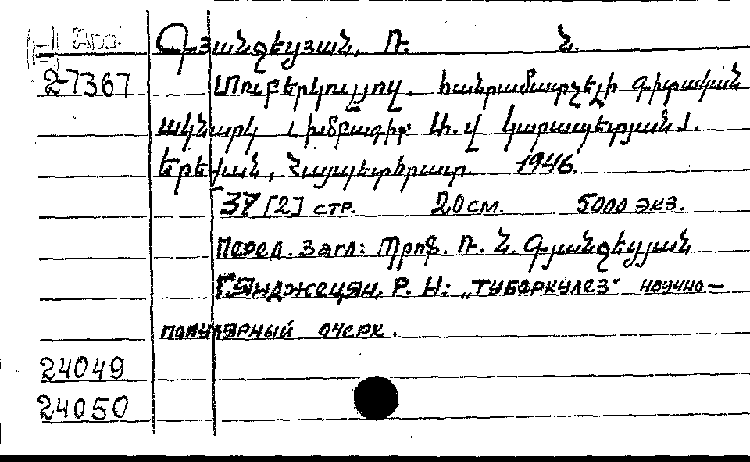 Գյանջեցյան, Ռ. Ն.
27367 Տուբերկուլյոզ. հանրամատչելի գիտական
ակնարկ [խմբագիր Ա. Վ. Կարապետյան].
Երևան, Հայպետհրատ. 1946.
37 [2] стр. 20 см. 5000 экз.
Перед. загл: Պրոֆ. Ռ. Ն. Գյանջեցյան
Гянджецян, Р. Н: „Туберкулез" научно-
популярный очерк.
24049
24050